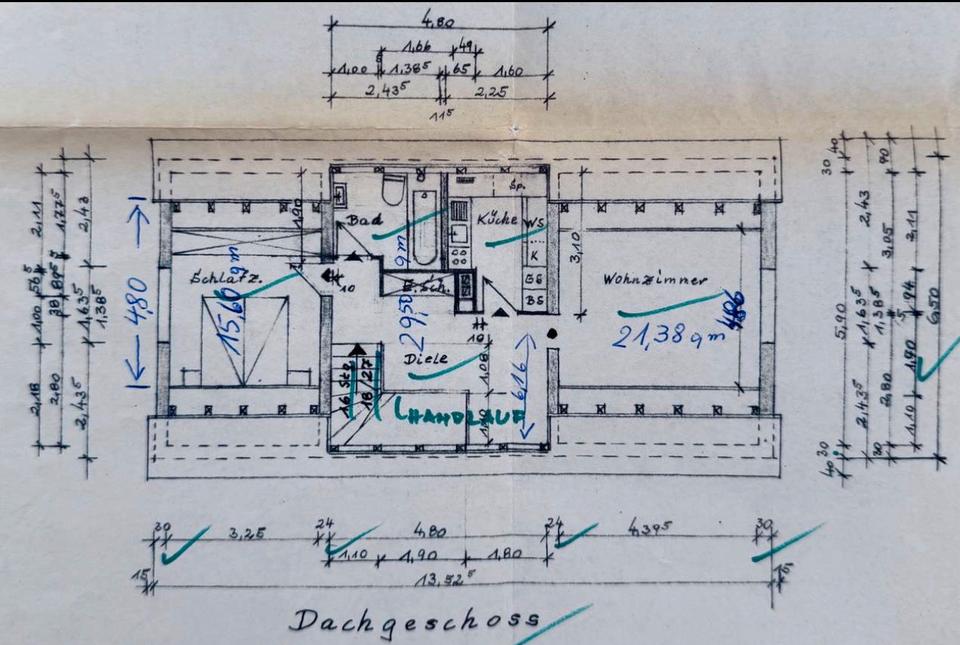 4,80
1,66 49
1,00 1,38⁵ 65 1,60
2,43⁵ 2,25
11⁵
30 40
2,11 1,77⁵ 2,43
56⁵ 89⁵
1,00 38 1,63⁵ 1,38⁵
2,18 2,80 2,43⁵
4,80
1,90
Bad
Küche
Sp.
WS
K
GS
BS
3,10
Schlafz.
15,60 qm
10
E.Sch.
29,50 qm
Wohnzimmer
21,38 qm
4,86
10
Diele
1,08
6,16
16 Stg.
18/27
HANDLAUF
1,10
2,43 90
3,05 2,11
5,90 1,63⁵ 1,38⁵ 1,94 6,50
2,43⁵ 2,80 1,90
1,10
30 40 30
20 3,25 24 4,80 24 4,39⁵ 30
1,10 1,90 1,80
15 13,52⁵ 15
Dachgeschoss